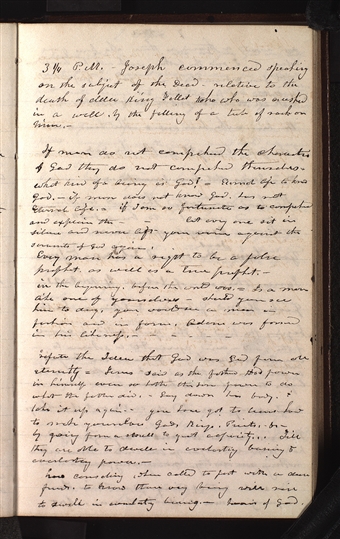 3 1/4 P.M. - Joseph commenced speaking
on the subject of the Dead - relative to the
death of elder King Follet who who was crushed
in a well. by the falling of a tub of rock on
him. -
If men do not comprehend the character
of God they do not comprehend themselves. -
what kind of a being is God? = Eternal life to know
God. - if man does not know God. has not
Eternal life. - if I am so fortunate as to comprehend
and explain the let every one sit in
silence and never lift your voice against the
servants of God again. -
Every man has a right to be a false
prophet. as well as a true prophet. -
in the beginning, before the world was. - Is a man
like one of yourselves - should you see
him to day, you would see a man in
fashion and in form, Adam was formed
in his likeness. -
Refute the Idea that God was God from all
eternity = Jesus said as the father Had power
in himself even so hath the son power to do
what the father did. - Lay down his body. &
take it up again. - you have got to learn how
to make yourselves Gods, Kings, Priests. &c -
by going from a small to great capacity. - Till
they are able to dwell in everlasting burning &
everlasting power. -
how consoling, when called to part with a dear
friend. to know their very being will rise
to dwell in everlasting burning. - heirs of God.